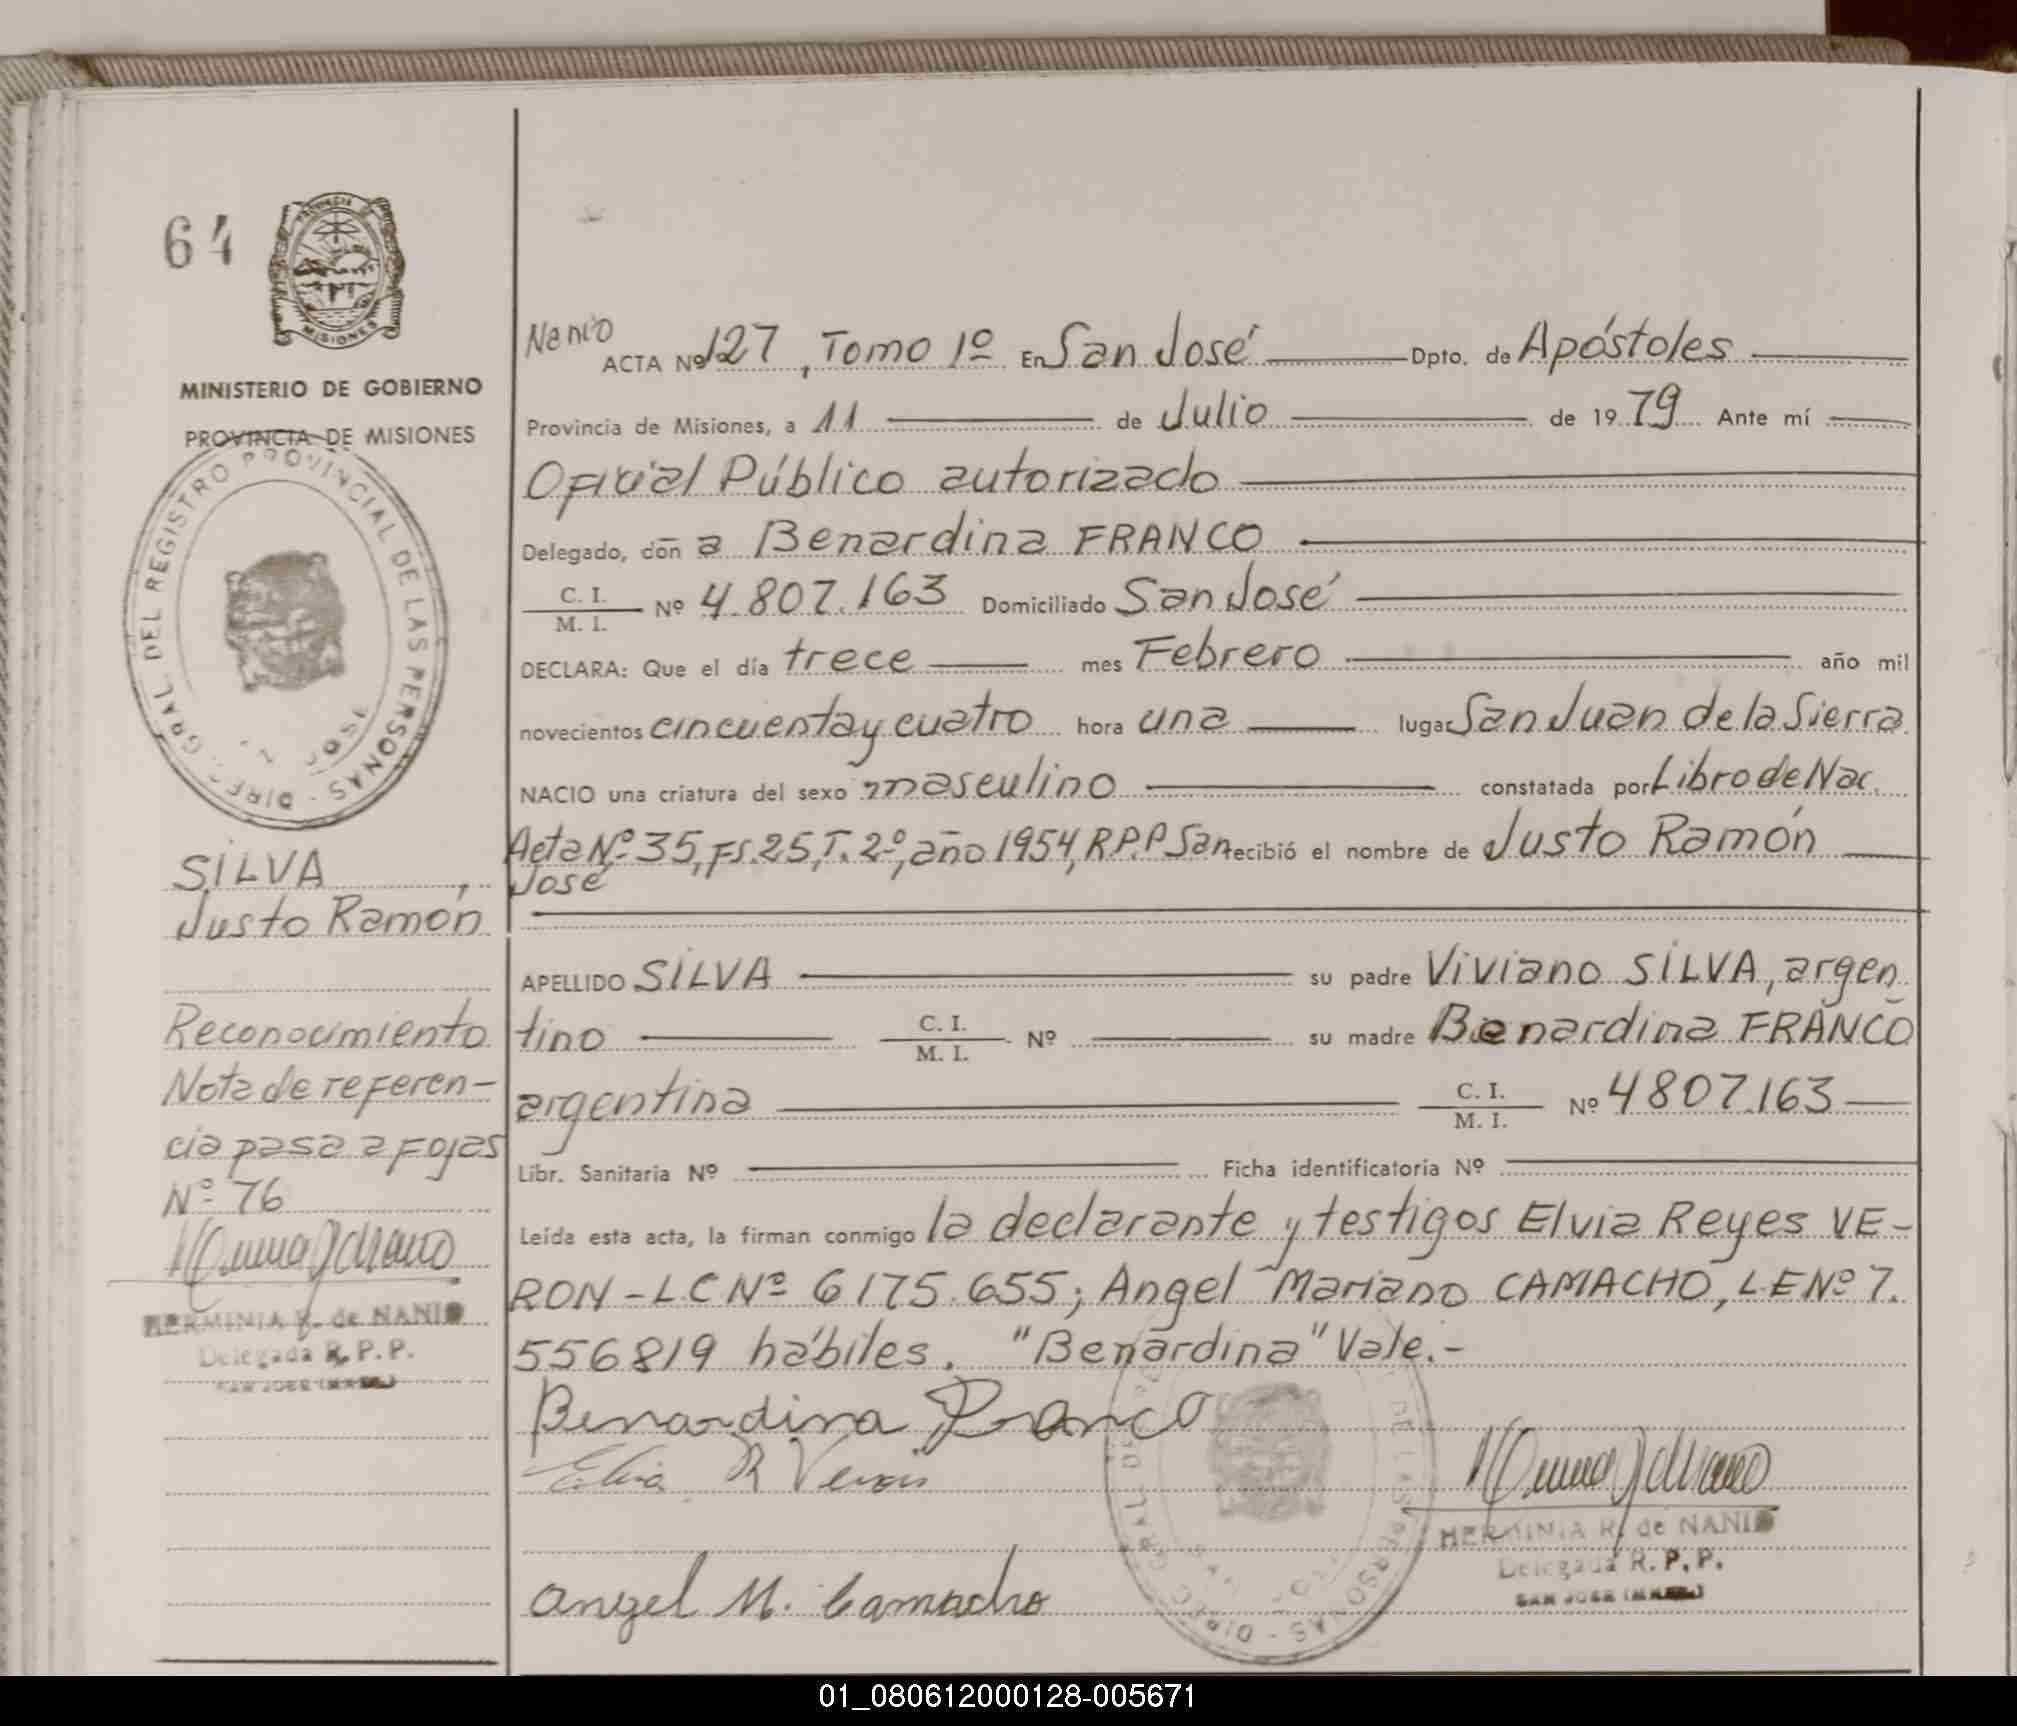 64
PROVINCIA DE
MISIONES
MINISTERIO DE GOBIERNO
PROVINCIA DE MISIONES
DIREC. GRAL. DEL REGISTRO PROVINCIAL DE LAS PERSONAS
SILVA,
Justo Ramón
Reconocimiento
Nota de referen-
cia pasa a Fojas
Nº 76
HERMINIA R. de NANIO
Delegada R. P. P.
SAN JOSE (MNES.)
Nanio
ACTA Nº 127, Tomo 1º En San José Dpto. de Apóstoles
Provincia de Misiones, a 11 de Julio de 1979 Ante mí
Oficial Público autorizado
Delegado, don a Benardina FRANCO
C. I. / M. I. Nº 4.807.163 Domiciliado San José
DECLARA: Que el día trece mes Febrero año mil
novecientos cincuenta y cuatro hora una lugar San Juan de la Sierra
NACIO una criatura del sexo masculino constatada por Libro de Nac.
Acta Nº 35, Fs. 25, T. 2º, año 1954, R.P.P San recibió el nombre de Justo Ramón
José
APELLIDO SILVA su padre Viviano SILVA, argen
tino C. I. / M. I. Nº su madre Benardina FRANCO
argentina C. I. / M. I. Nº 4807.163
Libr. Sanitaria Nº Ficha identificatoria Nº
Leída esta acta, la firman conmigo la declarante y testigos Elvia Reyes VE-
RON - LC Nº 6175.655; Angel Mariano CAMACHO, LE Nº 7.
556819 hábiles. "Benardina" Vale.-
Benardina Franco
Elvia R Veron
HERMINIA R. de NANIO
Delegada R. P. P.
SAN JOSE (MNES.)
Angel M. Camacho
01_080612000128-005671